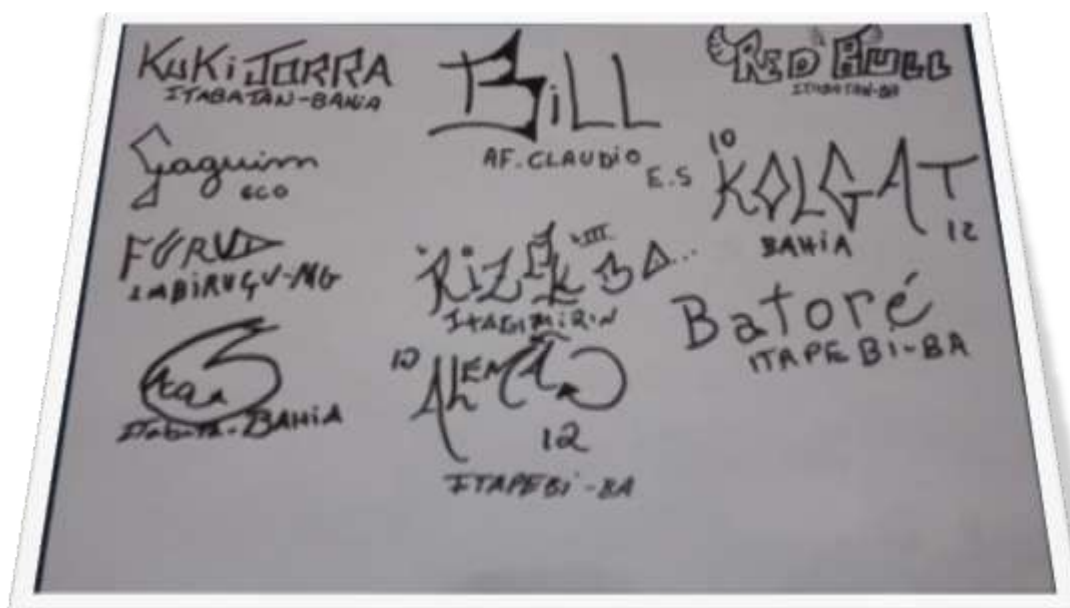 KUKi JORRA
ITABATAN-BAHIA
Gaguim
ECO
FURVD
IMBIRUÇU-MG
Itabatã-BAHiA
BiLL
AF. CLAUDiO
E.S
RiZ
ITAGIMIRIN
10
ALEMÃO
12
ITAPEBI-BA
RED BULL
ITABATAN-BA
10
KOLGAT
12
BAHiA
Batoré
ITAPEBI-BA